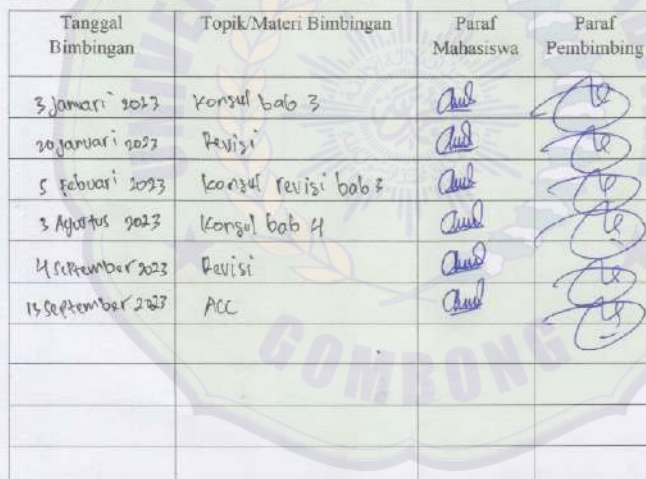 Tanggal Bimbingan Topik/Materi Bimbingan Paraf Mahasiswa Paraf Pembimbing
3 Januari 2023 Konsul bab 3
20 januari 2023 Revisi
5 Febuari 2023 konsul revisi bab 3
3 Agustus 2023 Konsul bab 4
4 September 2023 Revisi
13 September 2023 ACC
GOMBONG